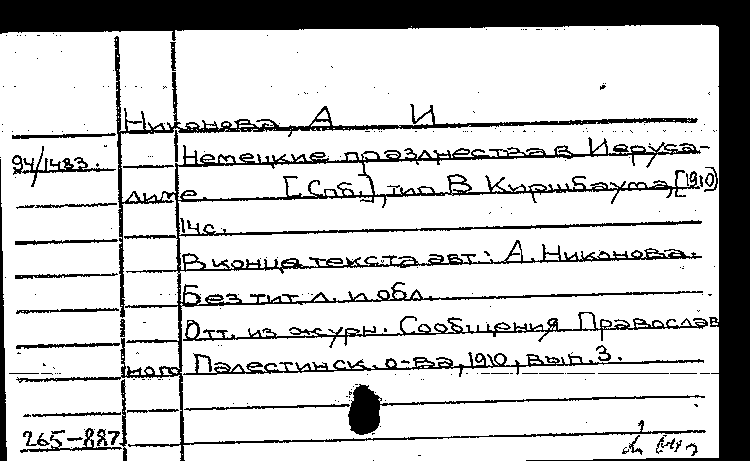 Никонова, А И
94/1483. Немецкие празднества в Иеруса-
лиме. [Спб.], тип В Киршбаума, [1910]
14с.
В конце текста авт.: А. Никонова.
Без тит. л. и обл.
Отт. из журн. Сообщения Православ
ного Палестинск. о-ва, 1910, вып. 3.
265-887